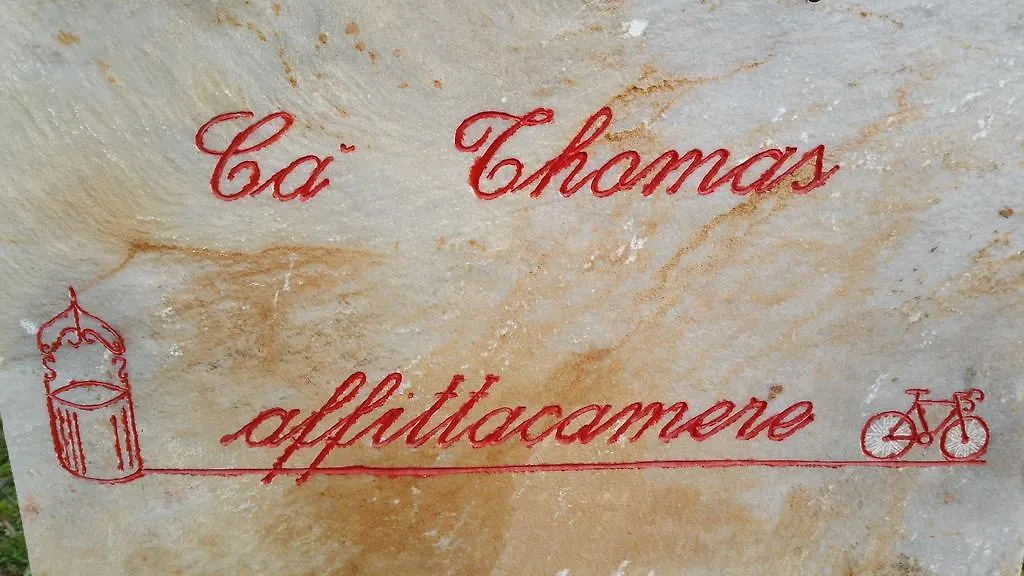 Cà Thomas
affittacamere